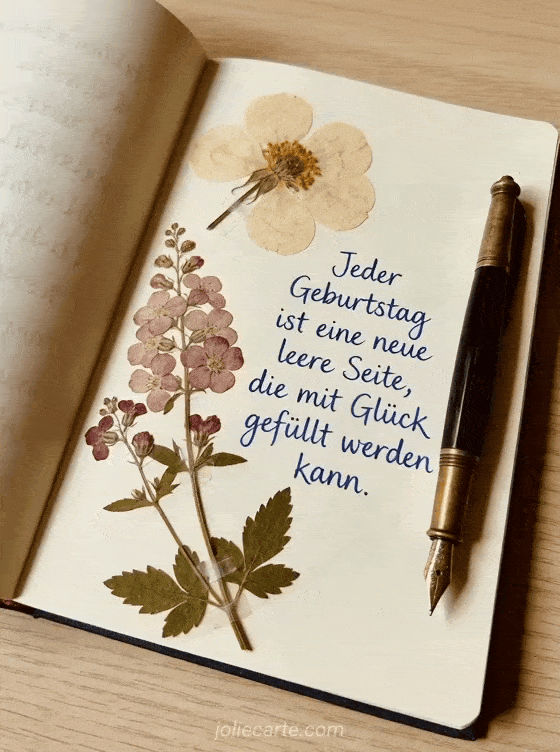 Jeder
Geburtstag
ist eine neue
leere Seite,
die mit Glück
gefüllt werden
kann.
joliecarte.com